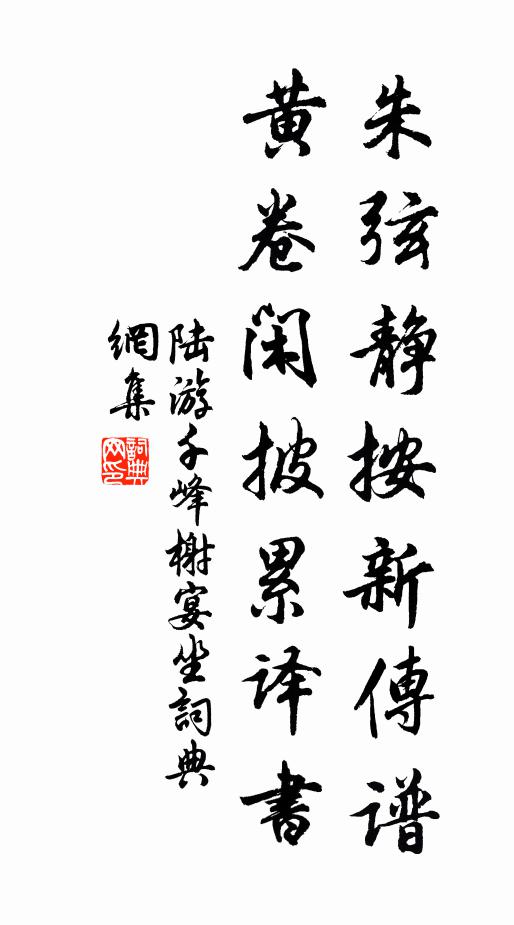 朱弦静按新傳谱
黄卷闲披累译書
陆游千峰榭宴坐詞典
網集
詞典网印